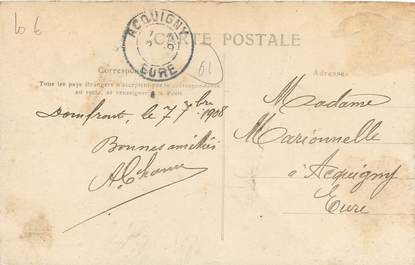 10 €
CARTE POSTALE
ACQUIGNY
EURE
61
Correspon
Adresse
Tous les pays étrangers n'acceptent pas la correspondance
au recto, se renseigner à la Poste.
Domfront, le 7 7bre 1908
Bonnes amitiés
Madame
Marionnelle
à Acquigny
Eure